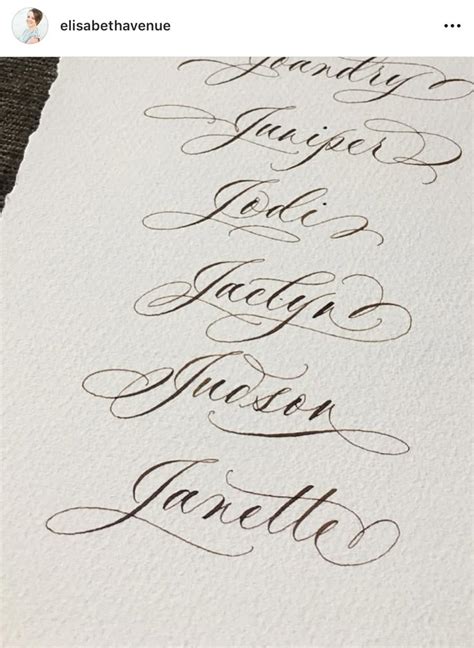 elisabethavenue
Foundry
Juniper
Jodi
Jaclyn
Judson
Janette